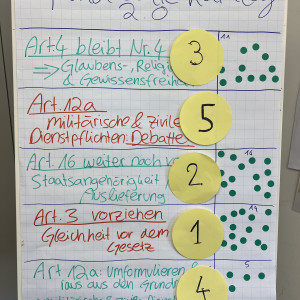 2.0
Art. 4 bleibt Nr. 4
3
11
⇒ Glaubens-, Relig
& Gewissensfreihe
Art. 12a
militärische & zivile
5
Dienstpflichten: Debatte
Art. 16 weiter nach v
2
Staatsangehörigkeit
Auslieferung
Art. 3 vorziehen
1
14
Gleichheit vor dem
Gesetz
Art 12a: Umformulieren &
4
5
raus aus den Grund